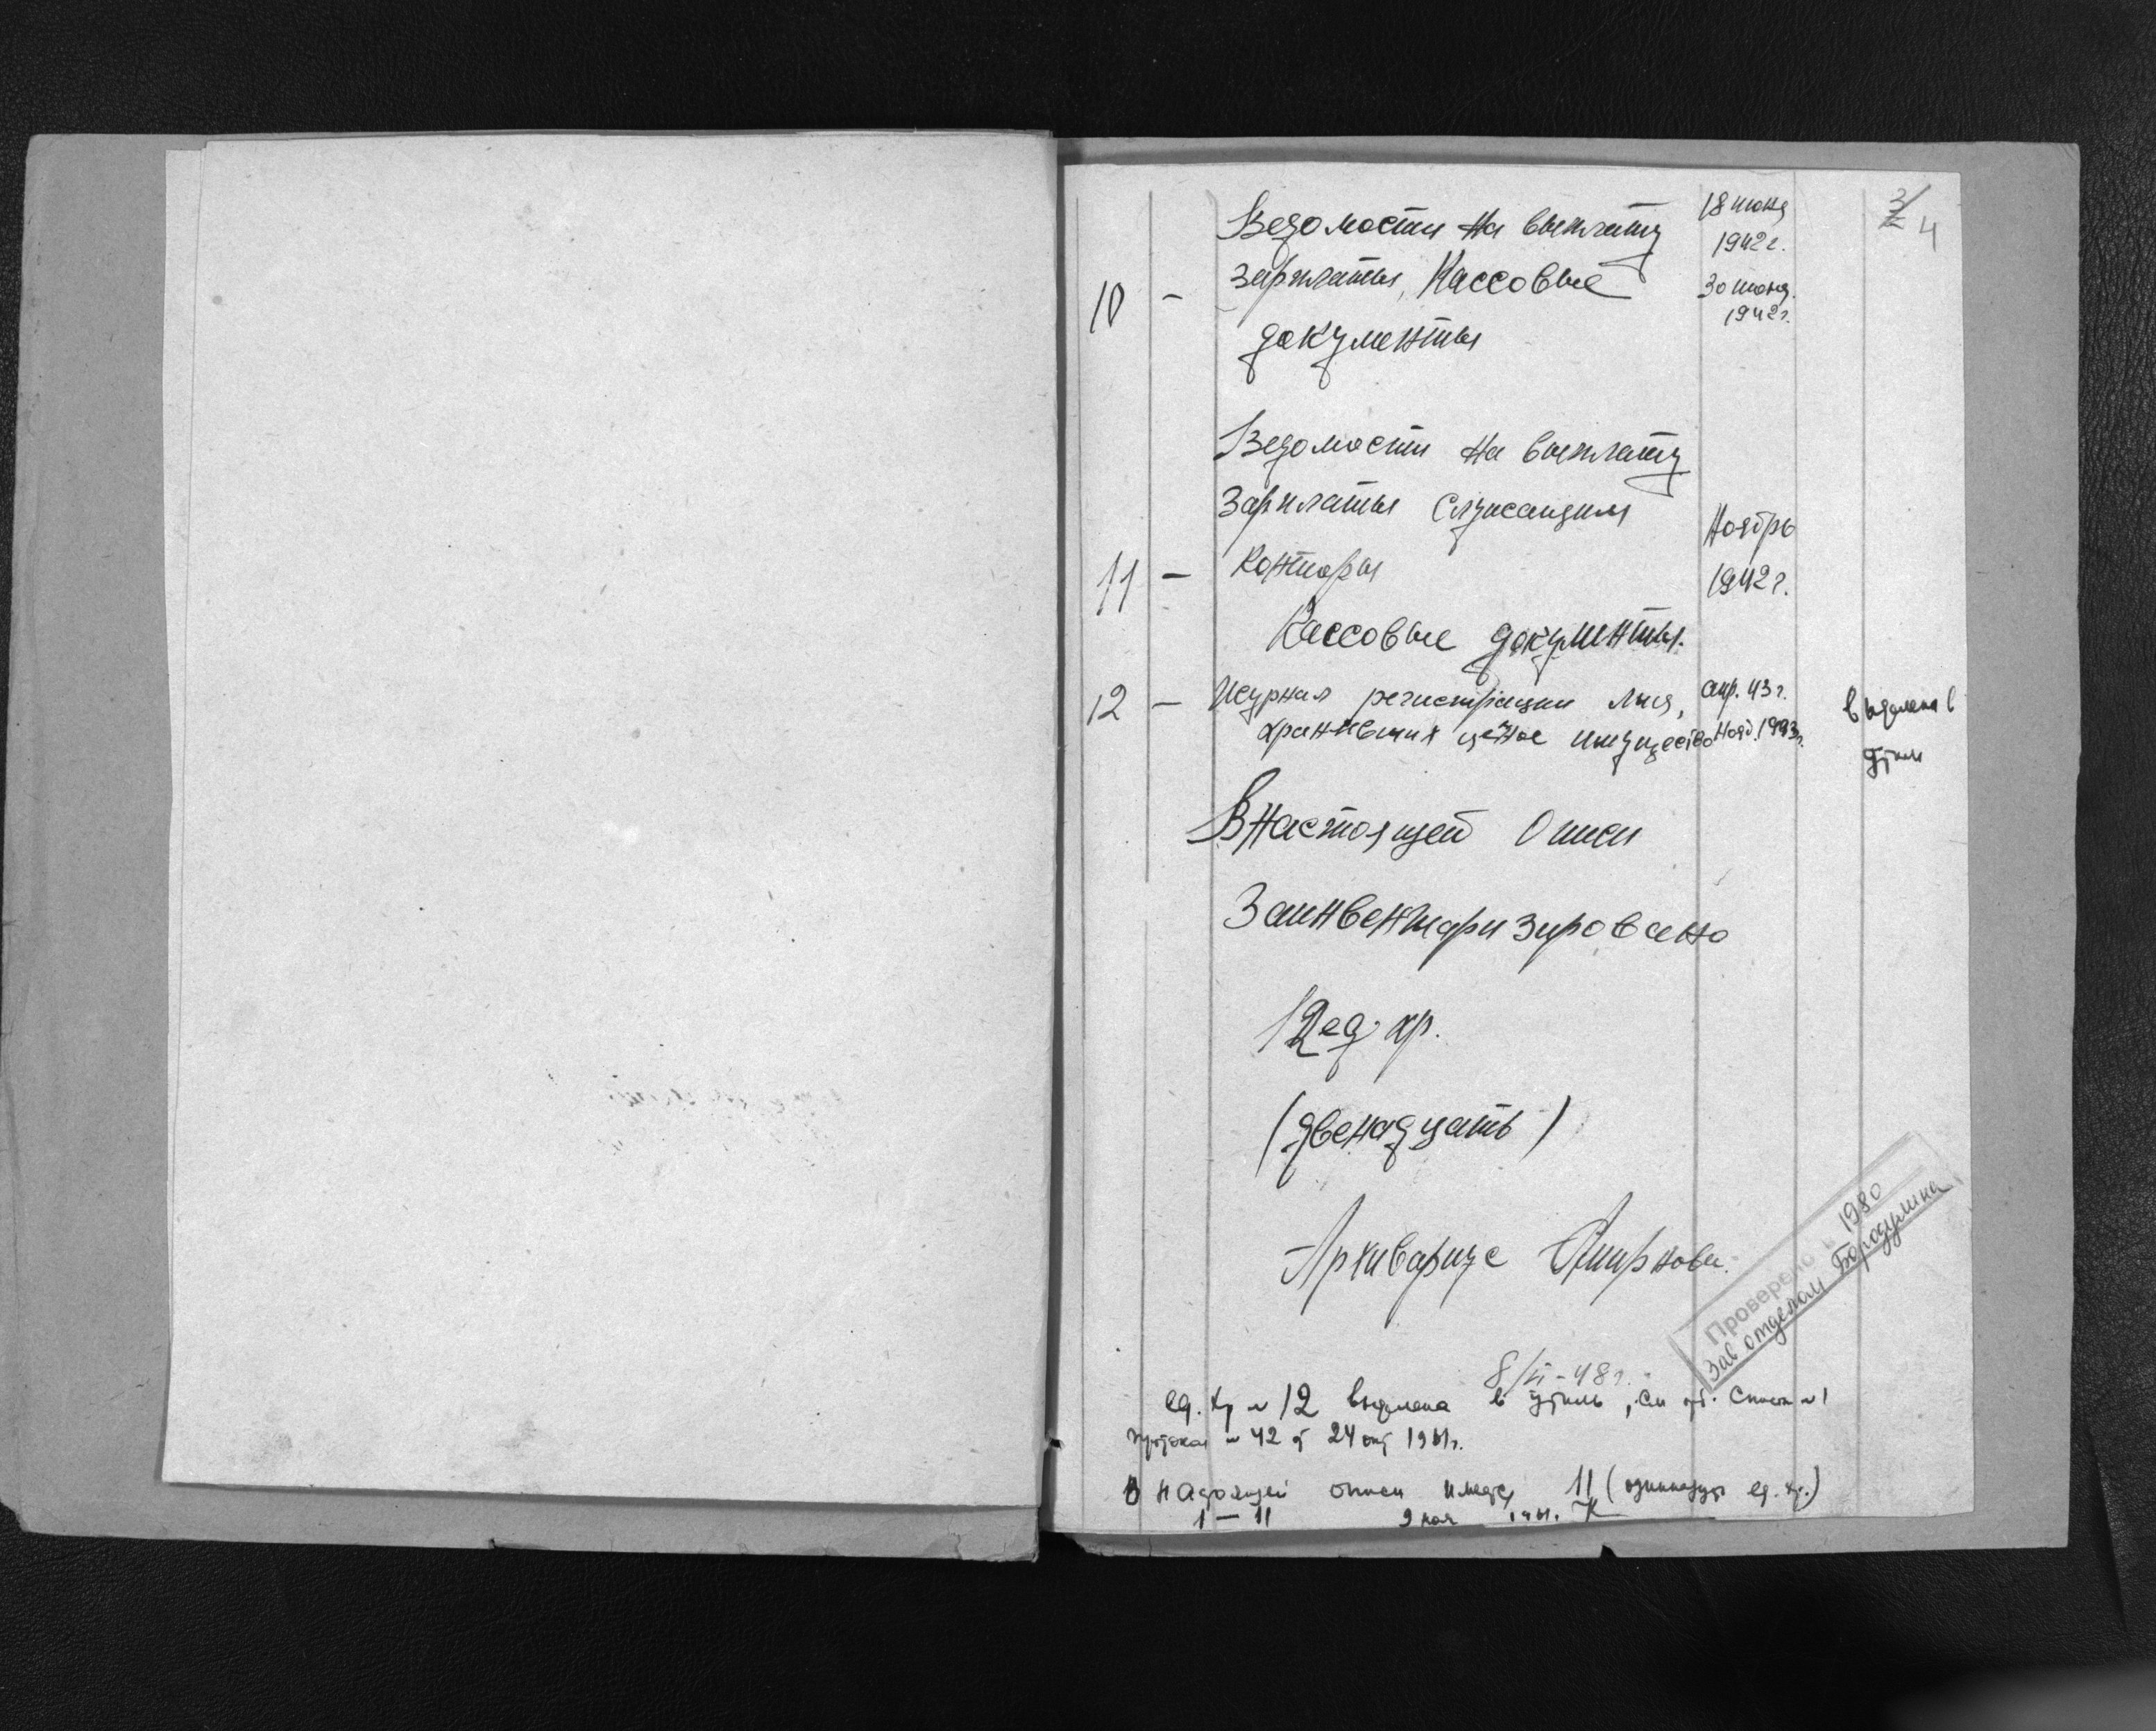 3/
4
Ведомости на выплату
зарплаты, Кассовые
документы
10 -
18 июня
1942 г.
30 июня
1942 г.
Ведомости на выплату
Зарплаты служащим
11 - Конторы
Кассовые документы.
Ноябрь
1942 г.
12 - Журнал регистрации лиц, апр. 43 г.
хранивших ценное имущество нояб. 1943 г.
выделена в
утиль
В настоящей Описи
Заинвентаризировано
12 ед. хр.
(двенадцать)
Архивариус Смирнова.
Проверено в 1980
Зав отделом Бородулина
8/VI-48 г.
ед. хр № 12 выделена в утиль, см № 1
протокол № 42 от 24 окт 1961 г.
В настоящей описи имеется 11 (одиннадцать ед. хр.)
1 - 11 9 ноя 1961.